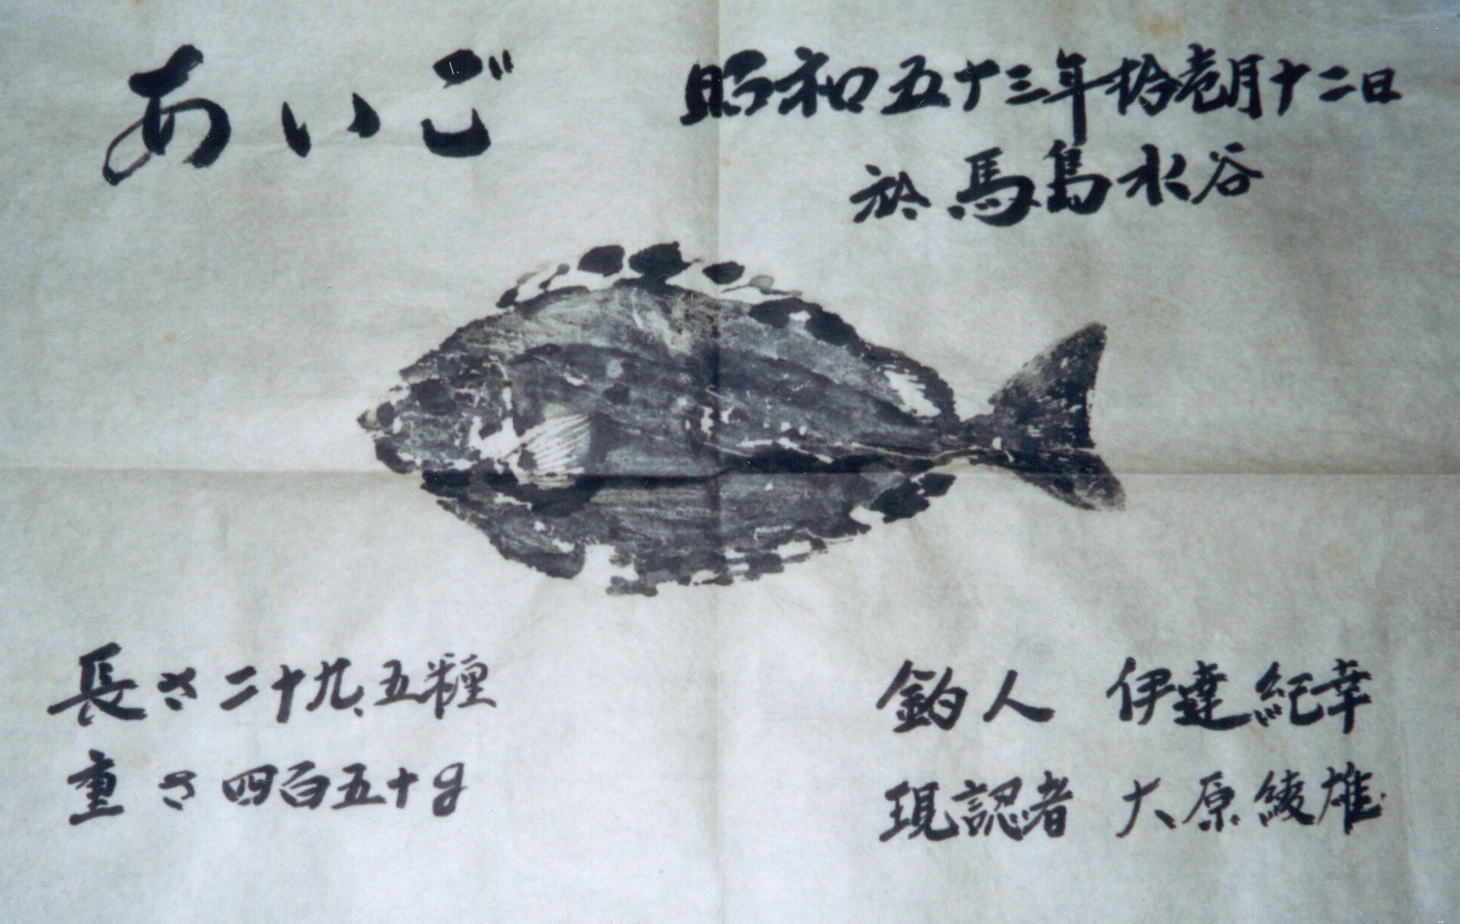 あいご
昭和五十三年拾壱月十二日
於馬島水谷
長さ二十九、五糎
重さ四百五十g
釣人 伊達紀幸
現認者 大原綾雄